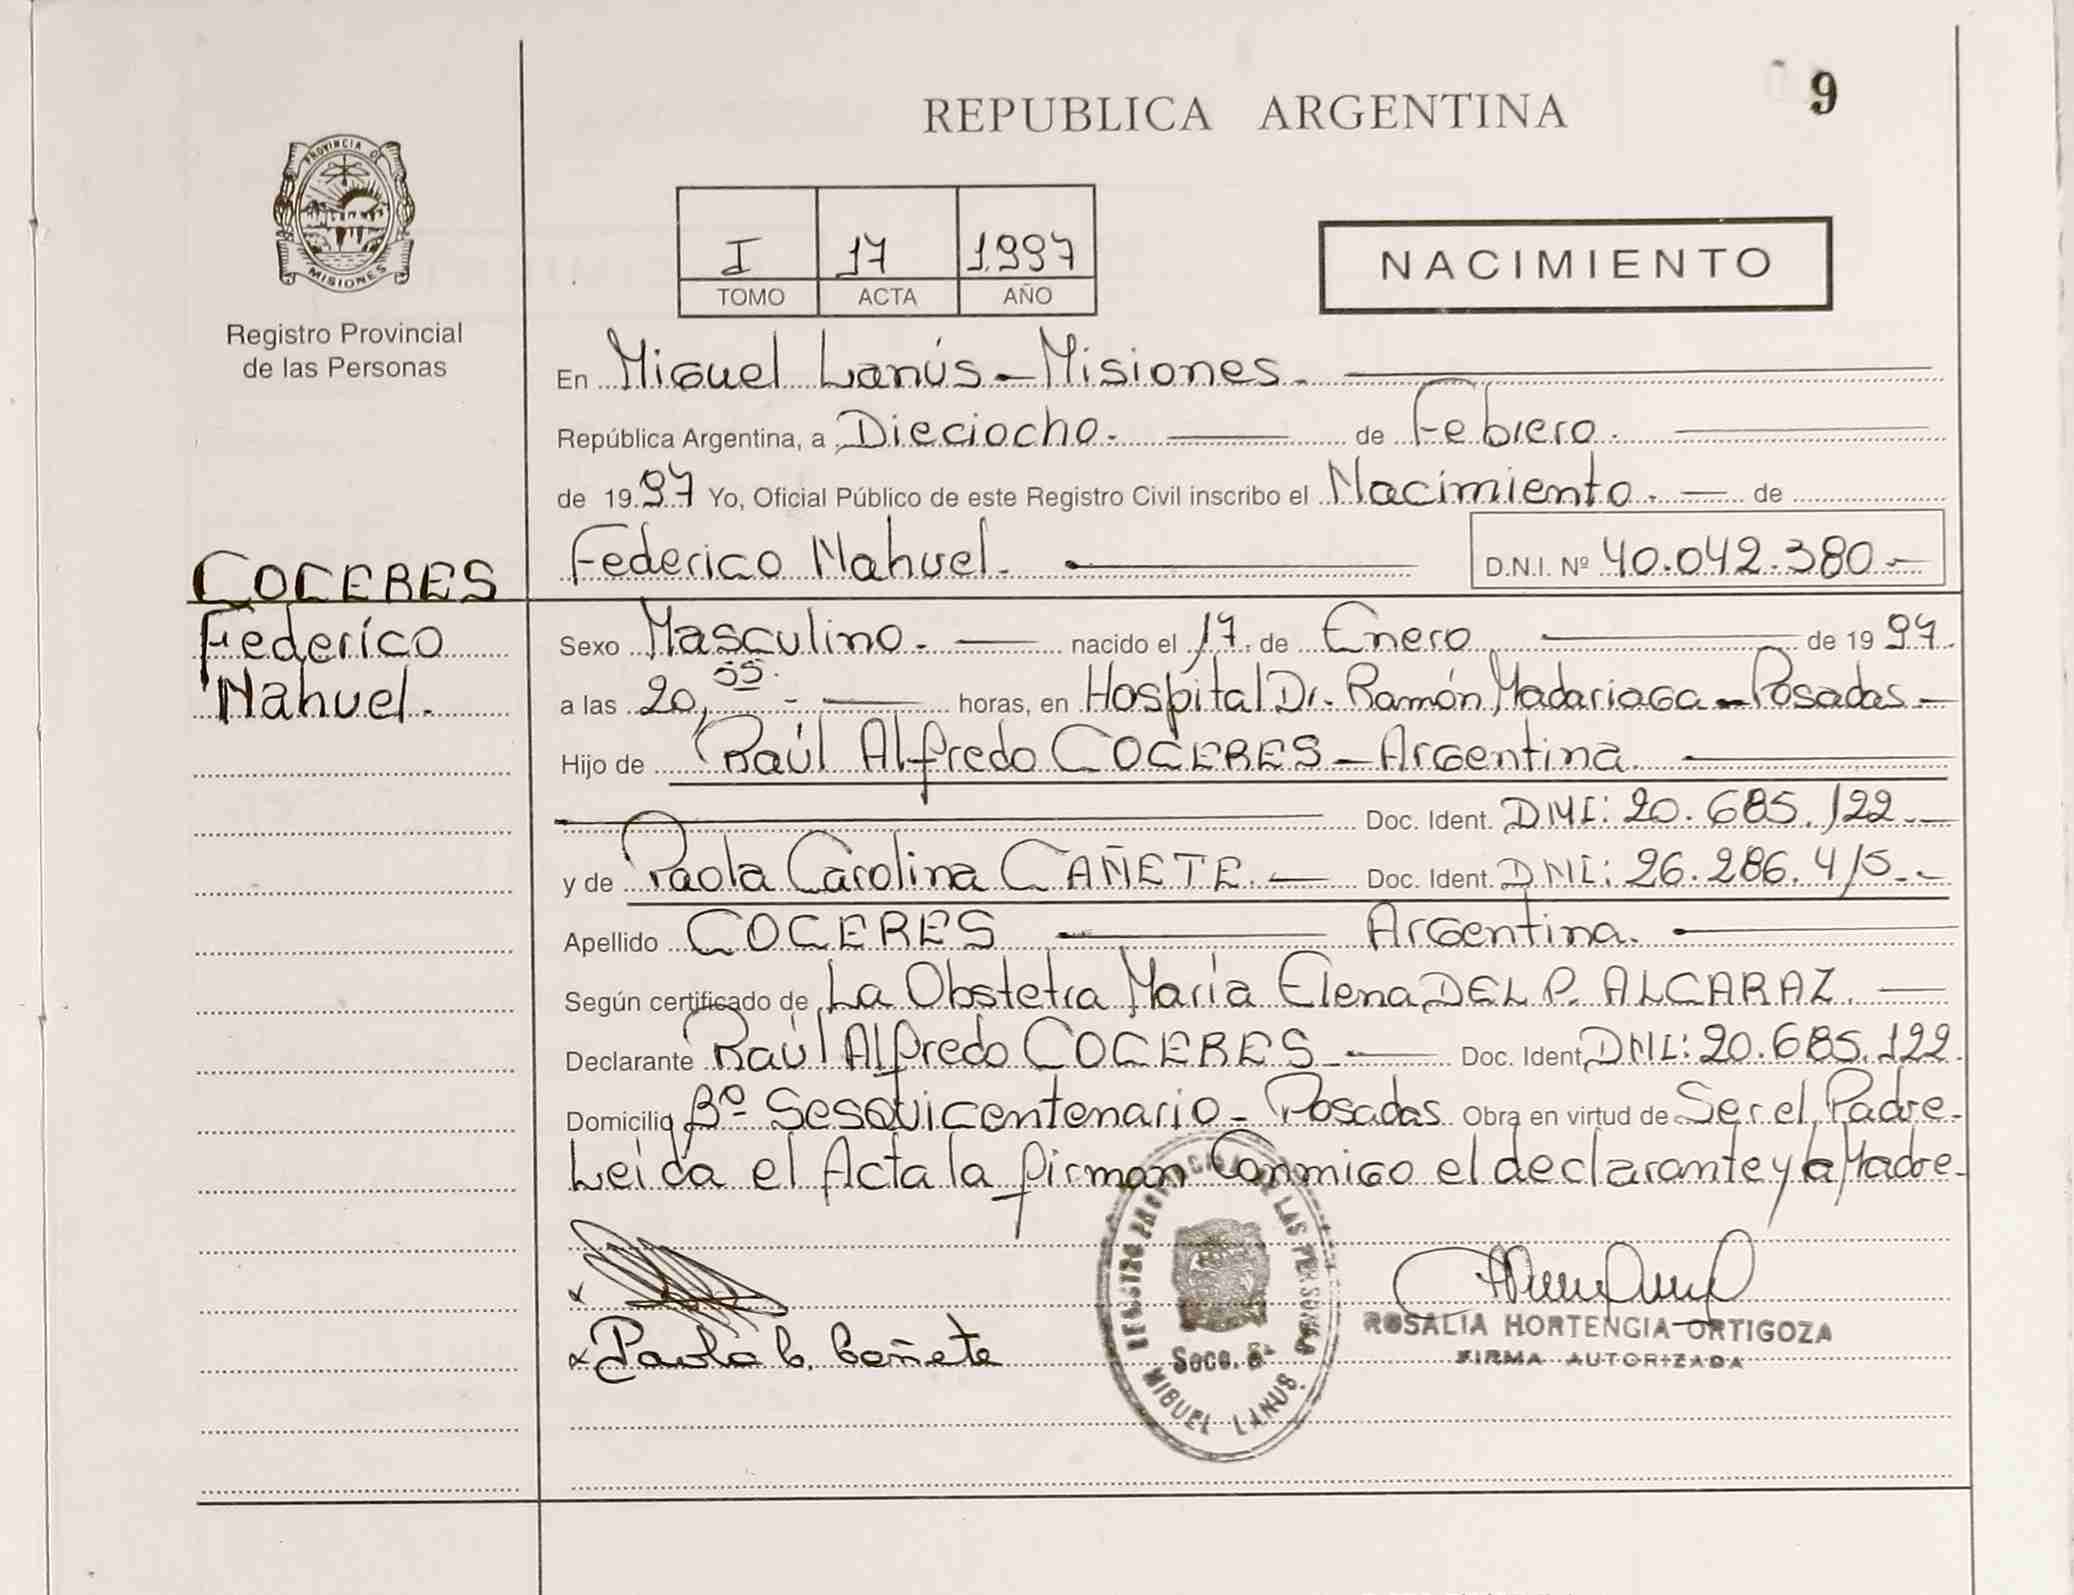 9
REPUBLICA ARGENTINA
PROVINCIA DE
MISIONES
Registro Provincial
de las Personas
I 17 1.997
TOMO ACTA AÑO
NACIMIENTO
En Miguel Lanús - Misiones.
República Argentina, a Dieciocho. de Febrero.
de 19 97 Yo, Oficial Público de este Registro Civil inscribo el Nacimiento. de
Federico Nahuel. D.N.I. Nº 40.042.380.-
COCERES
Federico
Nahuel.
Sexo Masculino. nacido el 17. de Enero de 19 97.
a las 20,55. horas, en Hospital Dr. Ramón Madariaga - Posadas -
Hijo de Raúl Alfredo COCERES - Argentina.
Doc. Ident. DNI: 20.685.122.-
y de Paola Carolina CAÑETE. Doc. Ident. DNI: 26.286.415.-
Apellido COCERES Argentina.
Según certificado de La Obstetra María Elena DEL P. ALCARAZ.
Declarante Raúl Alfredo COCERES Doc. Ident. DNI: 20.685.122.
Domicilio Bº Sesquicentenario - Posadas Obra en virtud de Ser el Padre.
Leida el Acta la firman Conmigo el declarante y la Madre.
x
x Paola C. Cañete
REGISTRO PROVINCIAL DE LAS PERSONAS
MIGUEL LANUS.
ROSALIA HORTENCIA ORTIGOZA
FIRMA AUTORIZADA